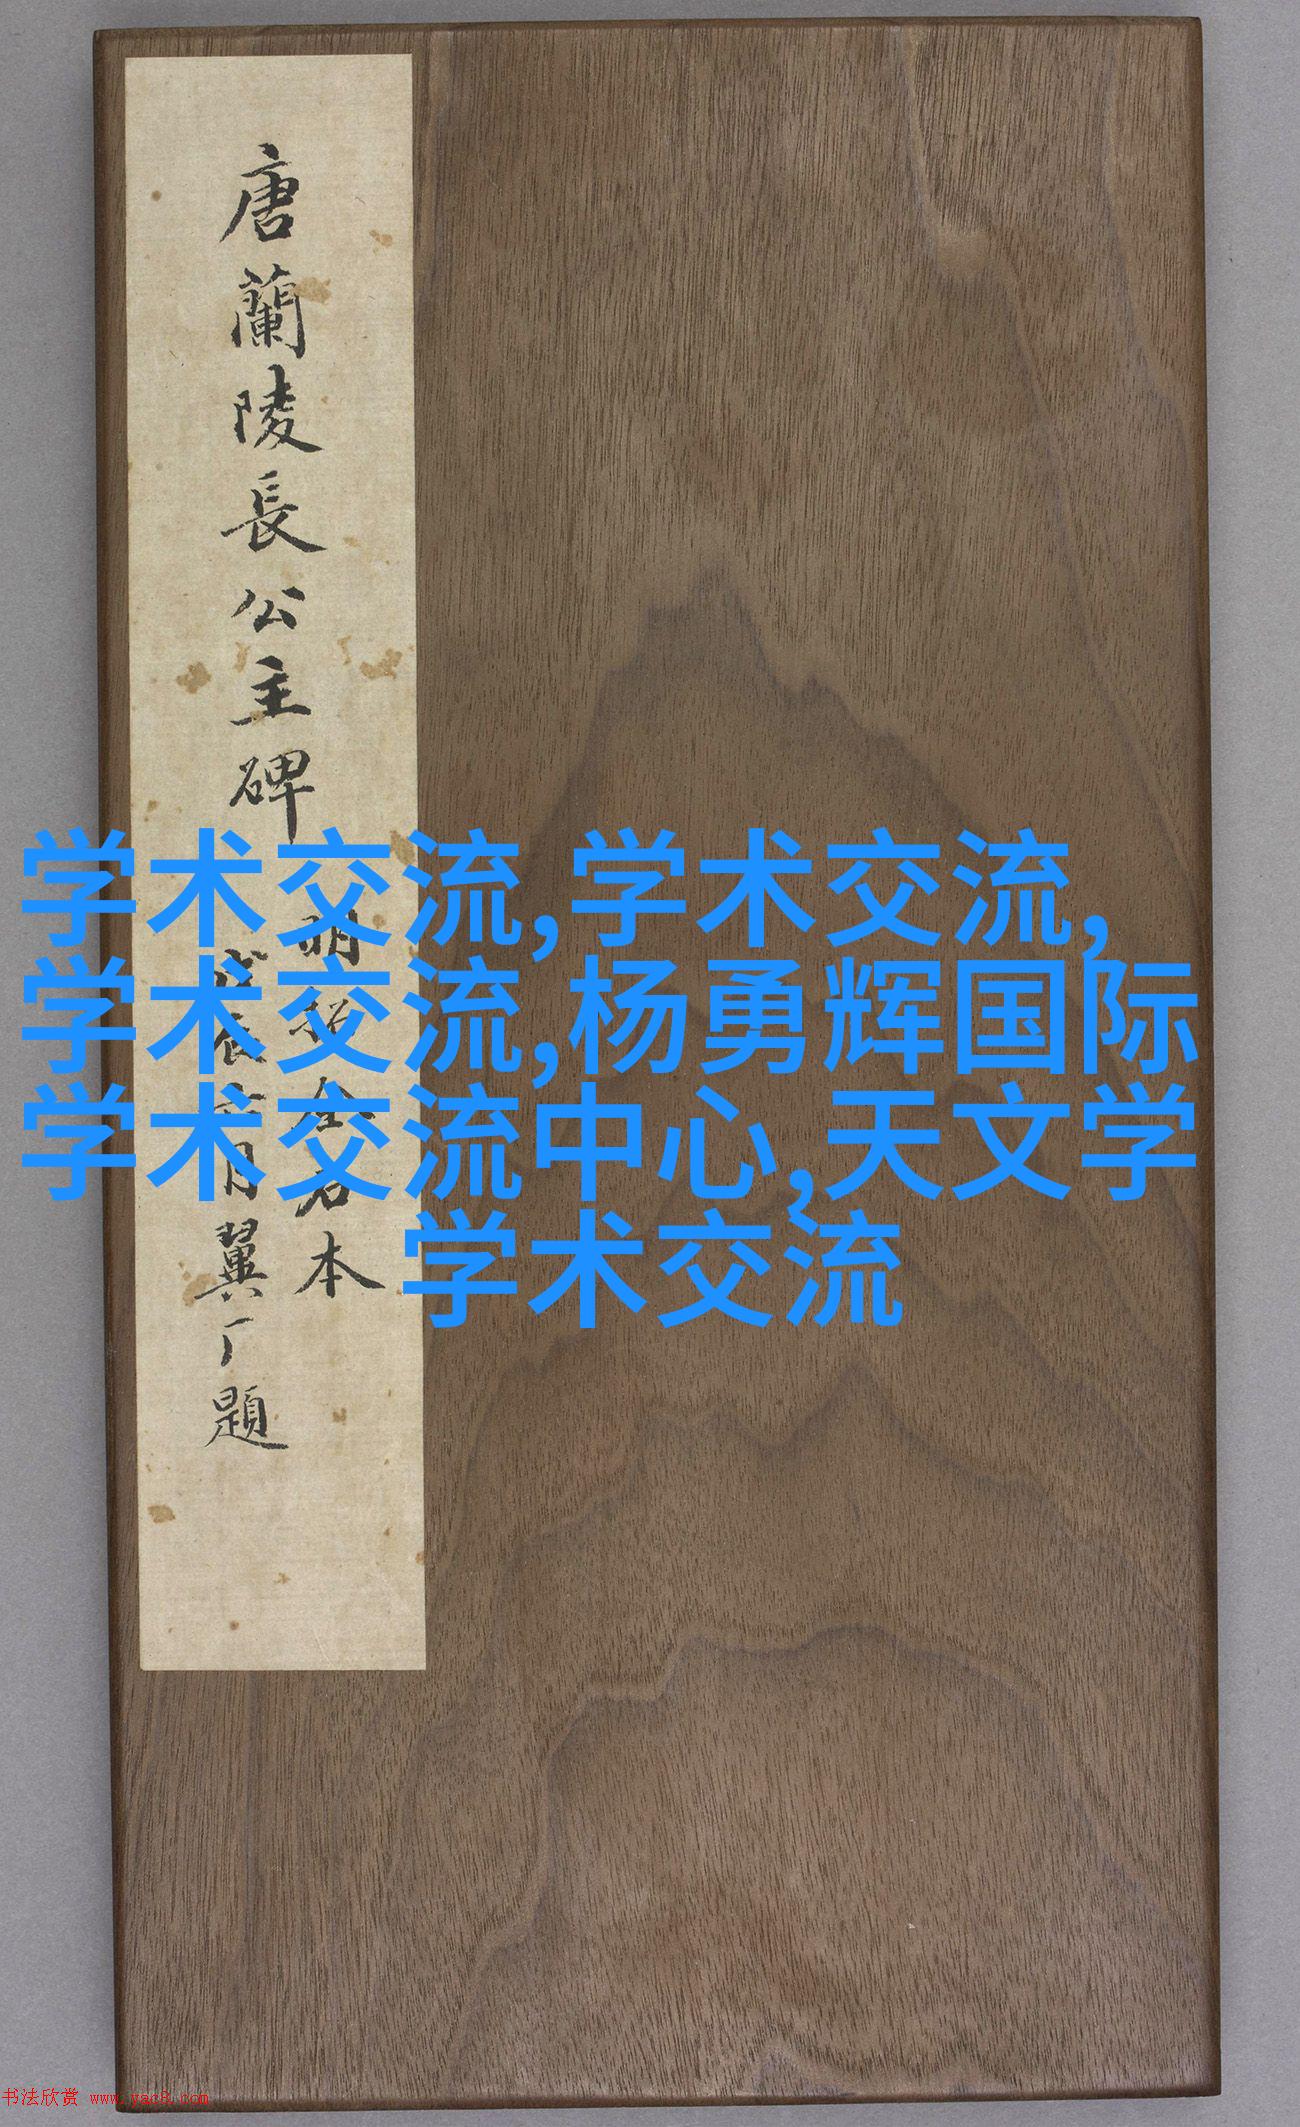 唐蘭陵長公主碑
明拓全石本
戊辰六月翼厂題
学术交流,学术交流,
学术交流,杨勇辉国际
学术交流中心,天文学
学术交流
书法欣赏 www.yac8.com